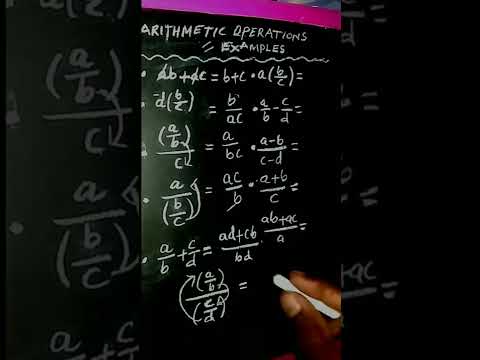 ARITHMETIC OPERATIONS
= EXAMPLES
• ab+ac = b+c • a(b/c) =
• d(b/c) = b/ac • a/b - c/d =
(a/b)/c = a/bc • a-b/c-d =
• a/(b/c) = ac/b • a+b/c =
• a/b + c/d = ad+cb/bd . ab+ac/a =
(a/b)/(c/d) =